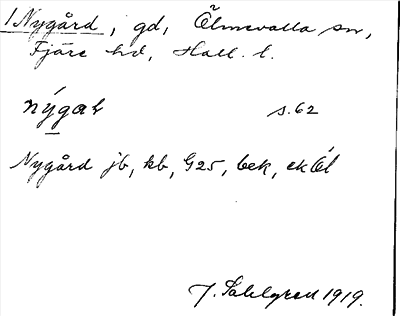 1 Nygård, gd, Ölmevalla sn,
Fjäre hd, Hall. l.
nýgaɫ s. 62
Nygård jb, kb, G25, bek, ek Öl
J. Sahlgren 1919.